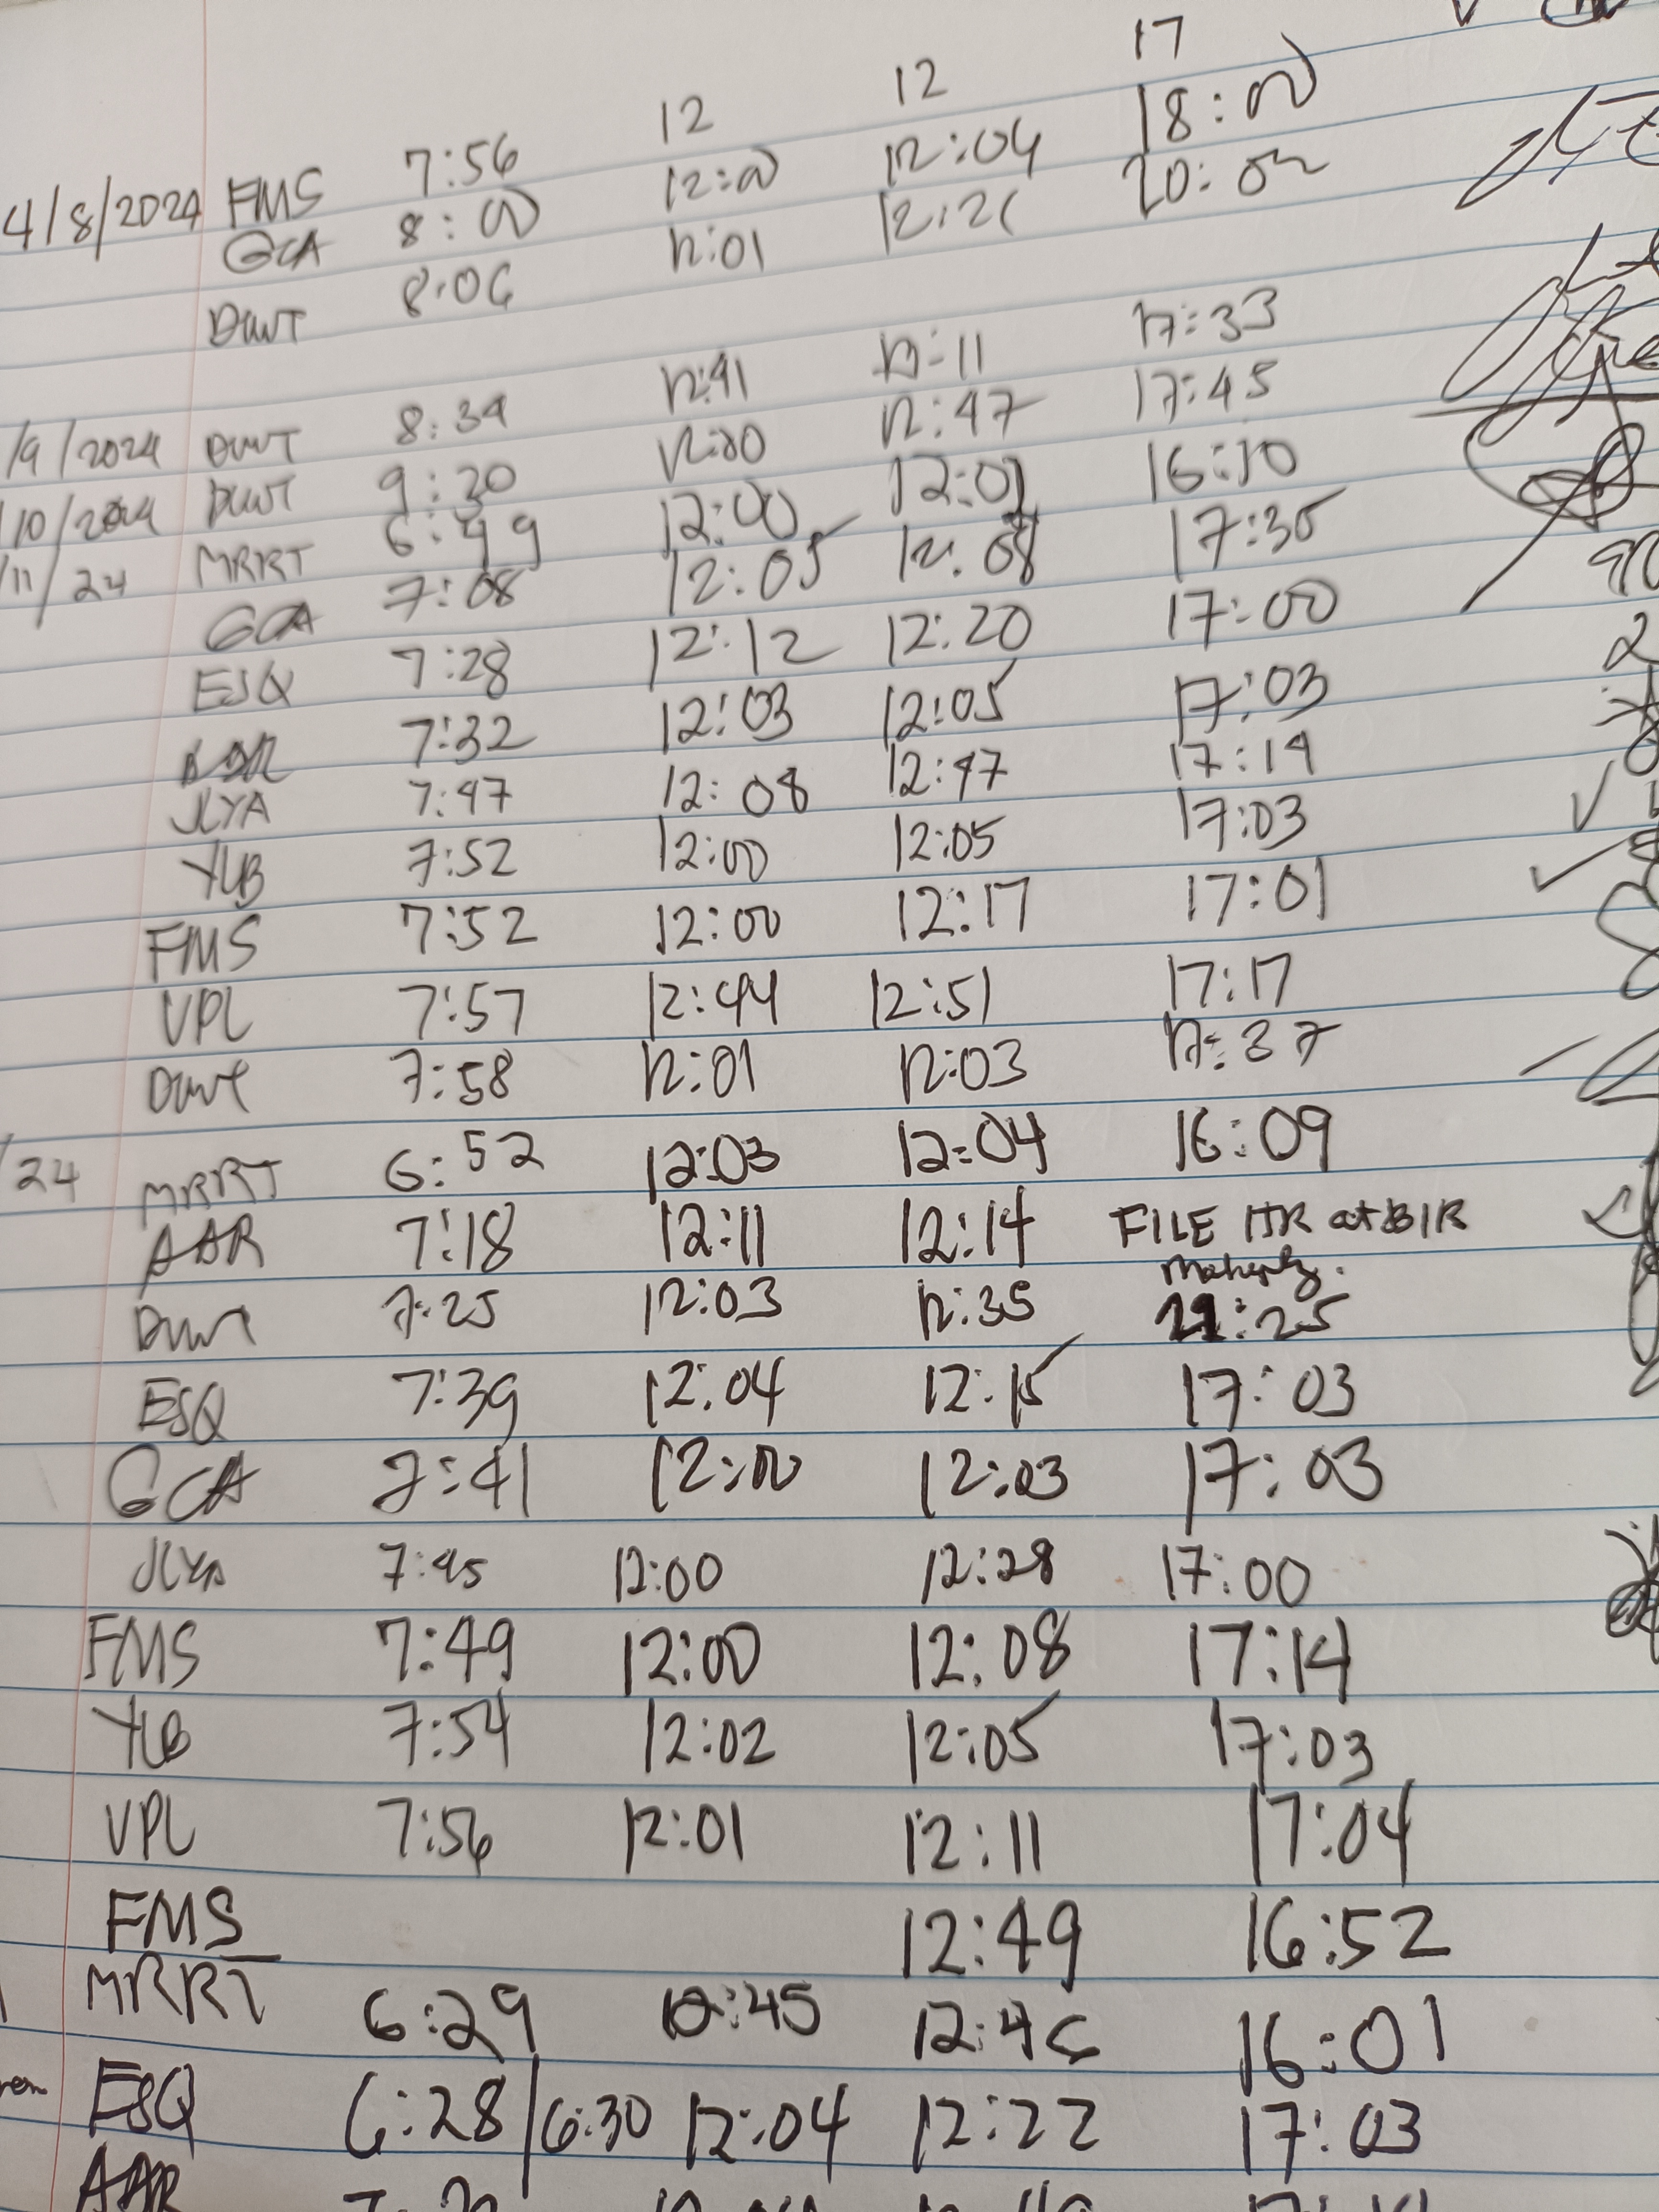 12 12 17
4/8/2024 FMS 7:56 12:00 12:04 18:00
GCA 8:00 12:01 12:26 20:02
DWT 8:06
/9/2024 DWT 8:34 12:41 17:11 17:33
/10/2024 DWT 9:20 12:20 12:47 17:45
/11/24 MRRT 6:49 12:00 12:01 16:10
GCA 7:08 12:05 12:08 17:35
ESQ 7:28 12:12 12:20 17:00
7:32 12:03 12:05 17:03
JLYA 7:47 12:08 12:47 17:14
YLB 7:52 12:00 12:05 17:03
FMS 7:52 12:00 12:17 17:01
VPL 7:57 12:44 12:51 17:17
DWT 7:58 12:01 12:03 17:37
/24 MRRT 6:52 12:03 12:04 16:09
AAR 7:18 12:11 12:14 FILE ITR at BIR
DWT 7:25 12:03 12:35 21:25
ESQ 7:39 12:04 12:15 17:03
GCA 7:41 12:00 12:03 17:03
JLYA 7:45 12:00 12:28 17:00
FMS 7:49 12:00 12:08 17:14
YLB 7:54 12:02 12:05 17:03
VPL 7:56 12:01 12:11 17:04
FMS 12:49 16:52
MRRT 6:29 12:45 12:46 16:01
ESQ 6:28/6:30 12:04 12:22 17:03
AAR